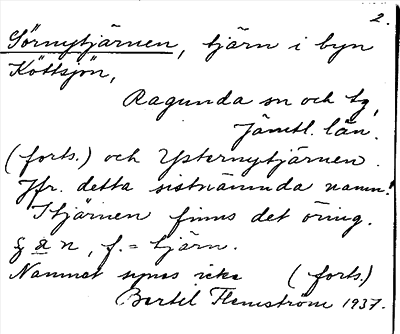 2.
Sörnytjärnen, tjärn i byn
Köttsjön,
Ragunda sn och tg,
Jämtl. län.
(forts.) och Ysternytjärnen.
Jfr. detta sistnämnda namn!
I tjärnen finns det öring.
n, f. = tjärn.
Namnet synes icke (forts.)
Bertil Flemström 1937.